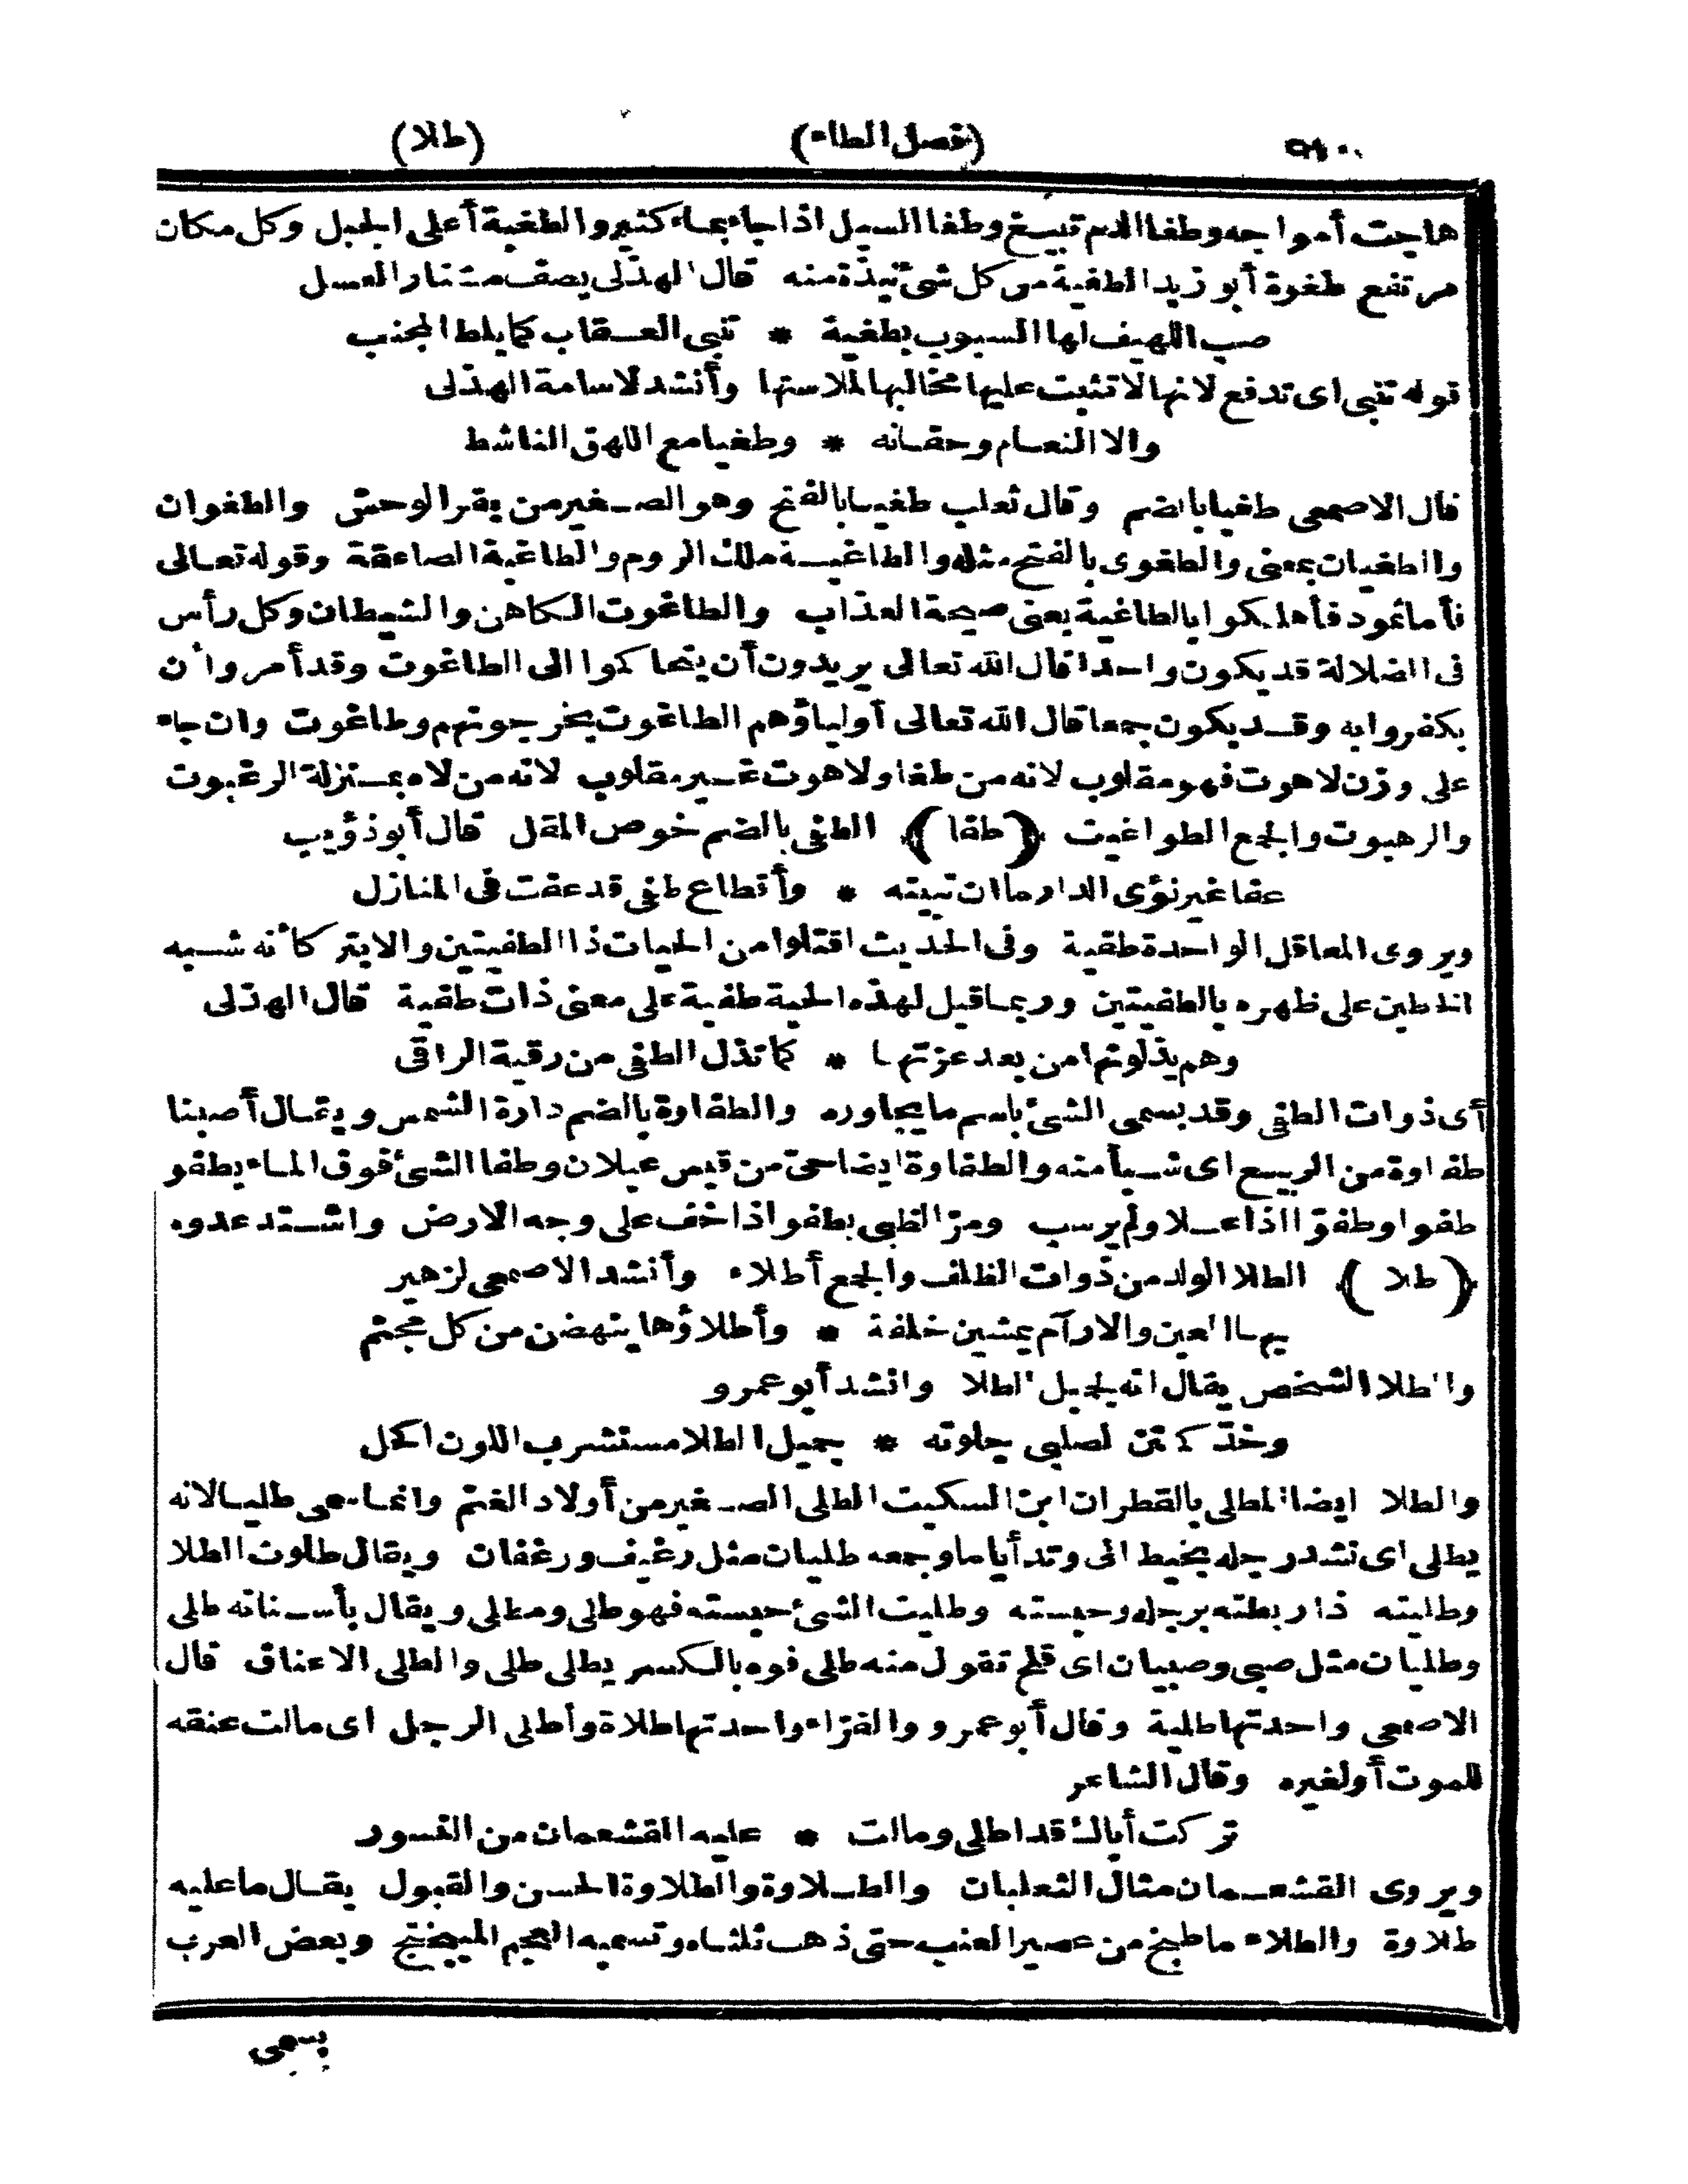 (فصل الطاء)
(طلا)
هاجت أمواجه وطغا الدم تبيـغ وطغا السيل اذا جاء بماء كثير والطغية أعلى الجبل وكل مكان
مرتفع طغوة أبو زيد الطغية من كل شئ نبذة منه قال الهذلى يصف مشتار العسل
صب اللهيف لها السبوب بطغية * تنبى العقاب كما يلط المجنب
قوله تنبى اى تدفع لانها لا تثبت عليها مخالبها لملاستها وأنشد لاسامة الهذلى
والا النعام وحفانه * وطغيا مع اللهق الناشط
قال الاصمعى طغيا بالضم وقال ثعلب طغيا بالفتح وهو الصغير من بقر الوحش والطغوان
والطغيان بمعنى والطغوى بالفتح مثله والطاغية ملك الروم والطاغية الصاعقة وقوله تعالى
فأما ثمود فأهلكوا بالطاغية يعنى صيحة العذاب والطاغوت الكاهن والشيطان وكل رأس
فى الضلالة قد يكون واحدا قال الله تعالى يريدون أن يتحاكموا الى الطاغوت وقد أمروا أن
يكفروا به وقد يكون جمعا قال الله تعالى أولياؤهم الطاغوت يخرجونهم وطاغوت وان جاء
على وزن لاهوت فهو مقلوب لانه من طغا ولاهوت غير مقلوب لانه من لاه بمنزلة الرغبوت
والرهبوت والجمع الطواغيت (طفا) الطفى بالضم خوص المقل قال أبو ذؤيب
عفا غير نؤى الدار ما ان تبينه * وأقطاع طفى قد عفت فى المنازل
ويروى المعاقل الواحدة طفية وفى الحديث اقتلوا من الحيات ذا الطفيتين والابتر كأنه شبه
الخطين على ظهره بالطفيتين وربما قيل لهذه الحية طفية على معنى ذات طفية قال الهذلى
وهم يذلونها من بعد عزتها * كما تذل الطفى من رقية الراقى
أى ذوات الطفى وقد يسمى الشئ باسم ما يجاوره والطفاوة بالضم دارة الشمس ويقال أصبنا
طفاوة من الربيع اى شيأ منه والطفاوة ايضا حى من قيس عيلان وطفا الشئ فوق الماء يطفو
طفوا وطفوّا اذا علا ولم يرسب ومرّ الظبى يطفو اذا خف على وجه الارض واشتد عدوه
(طلا) الطلا الولد من ذوات الظلف والجمع أطلاء وأنشد الاصمعى لزهير
بها العين والارآم يمشين خلفة * وأطلاؤها ينهضن من كل مجثم
والطلا الشخص يقال انه لجميل الطلا وانشد أبو عمرو
وخدّ كمتن الصلبى جلوته * جميل الطلا مستشرب اللون اكحل
والطلا ايضا المطلى بالقطران ابن السكيت الطلى الصغير من أولاد الغنم وانما سمى طليا لانه
يطلى اى تشد رجله بخيط الى وتد أياما وجمعه طليان مثل رغيف ورغفان ويقال طلوت الطلا
وطليته اذا ربطته برجله وحبسته وطليت الشئ حبسته فهو طلى ومطلى ويقال بأسنانه طلى
وطليان مثل صبى وصبيان اى قلح تقول منه طلى فوه بالكسر يطلى طلى والطلى الاعناق قال
الاصمعى واحدتها طلية وقال أبو عمرو والفرّاء واحدتها طلاة وأطلى الرجل اى مالت عنقه
للموت أو لغيره وقال الشاعر
تركت أباك قد اطلى ومالت * عليه القشعمان من النسور
ويروى القشعمان مثال الثعلبان والطلاوة والطلاوة الحسن والقبول يقال ما عليه
طلاوة والطلاء ما طبخ من عصير العنب حتى ذهب ثلثاه وتسميه العجم الميبختج وبعض العرب
يسمى